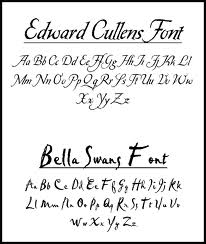 Edward Cullens Font
Aa Bb Cc Dd Ee Ff Gg Hh Ii Jj Kk Ll
Mm Nn Oo Pp Qq Rr Ss Tt Uu Vv Ww
Xx Yy Zz
Bella Swans Font
Aa Bb Cc Dd Ee Ff Gg Hh Ii Jj Kk
Ll Mm Nn Oo Pp Qq Rr Ss Tt Uu Vv
Ww Xx Yy Zz